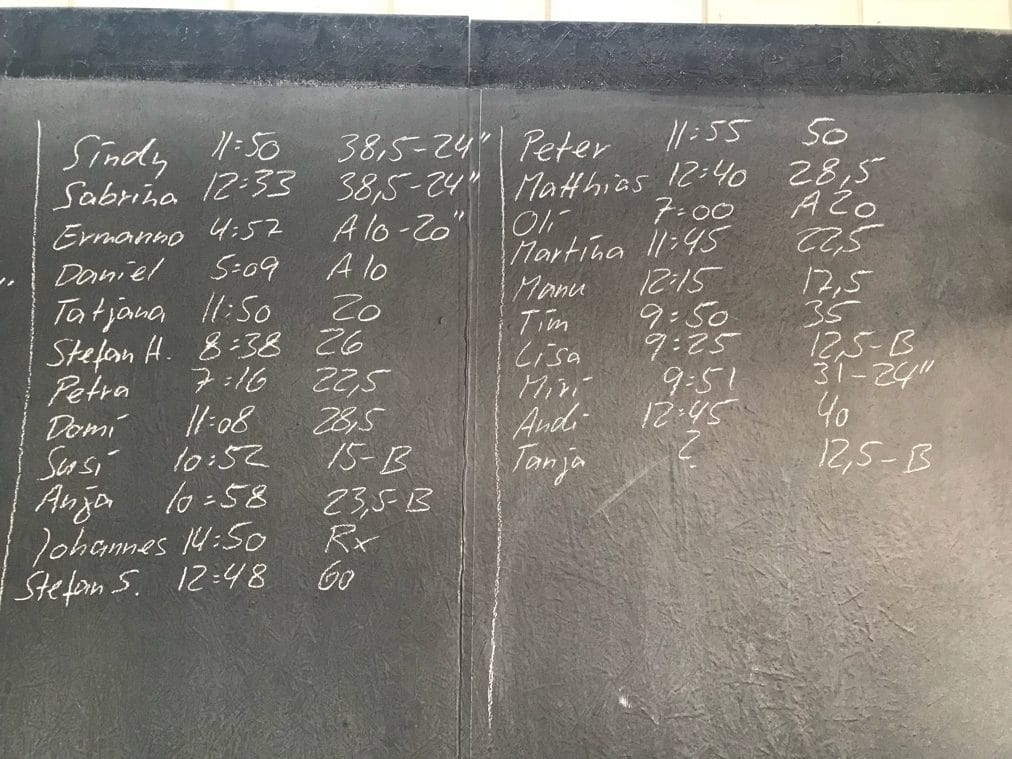 Sindy 11:50 38,5-24"
Sabrina 12:33 38,5-24"
Ermanno 4:52 A10-20"
Daniel 5:09 A10
Tatjana 11:50 20
Stefan H. 8:38 26
Petra 7:16 22,5
Domi 11:08 28,5
Susi 10:52 15-B
Anja 10:58 23,5-B
Johannes 14:50 Rx
Stefan S. 12:48 60
Peter 11:55 50
Matthias 12:40 28,5
Oli 7:00 A20
Martina 11:45 22,5
Manu 12:15 17,5
Tim 9:50 35
Lisa 9:25 12,5-B
Miri 9:51 31-24"
Andi 12:45 40
Tanja ? 12,5-B